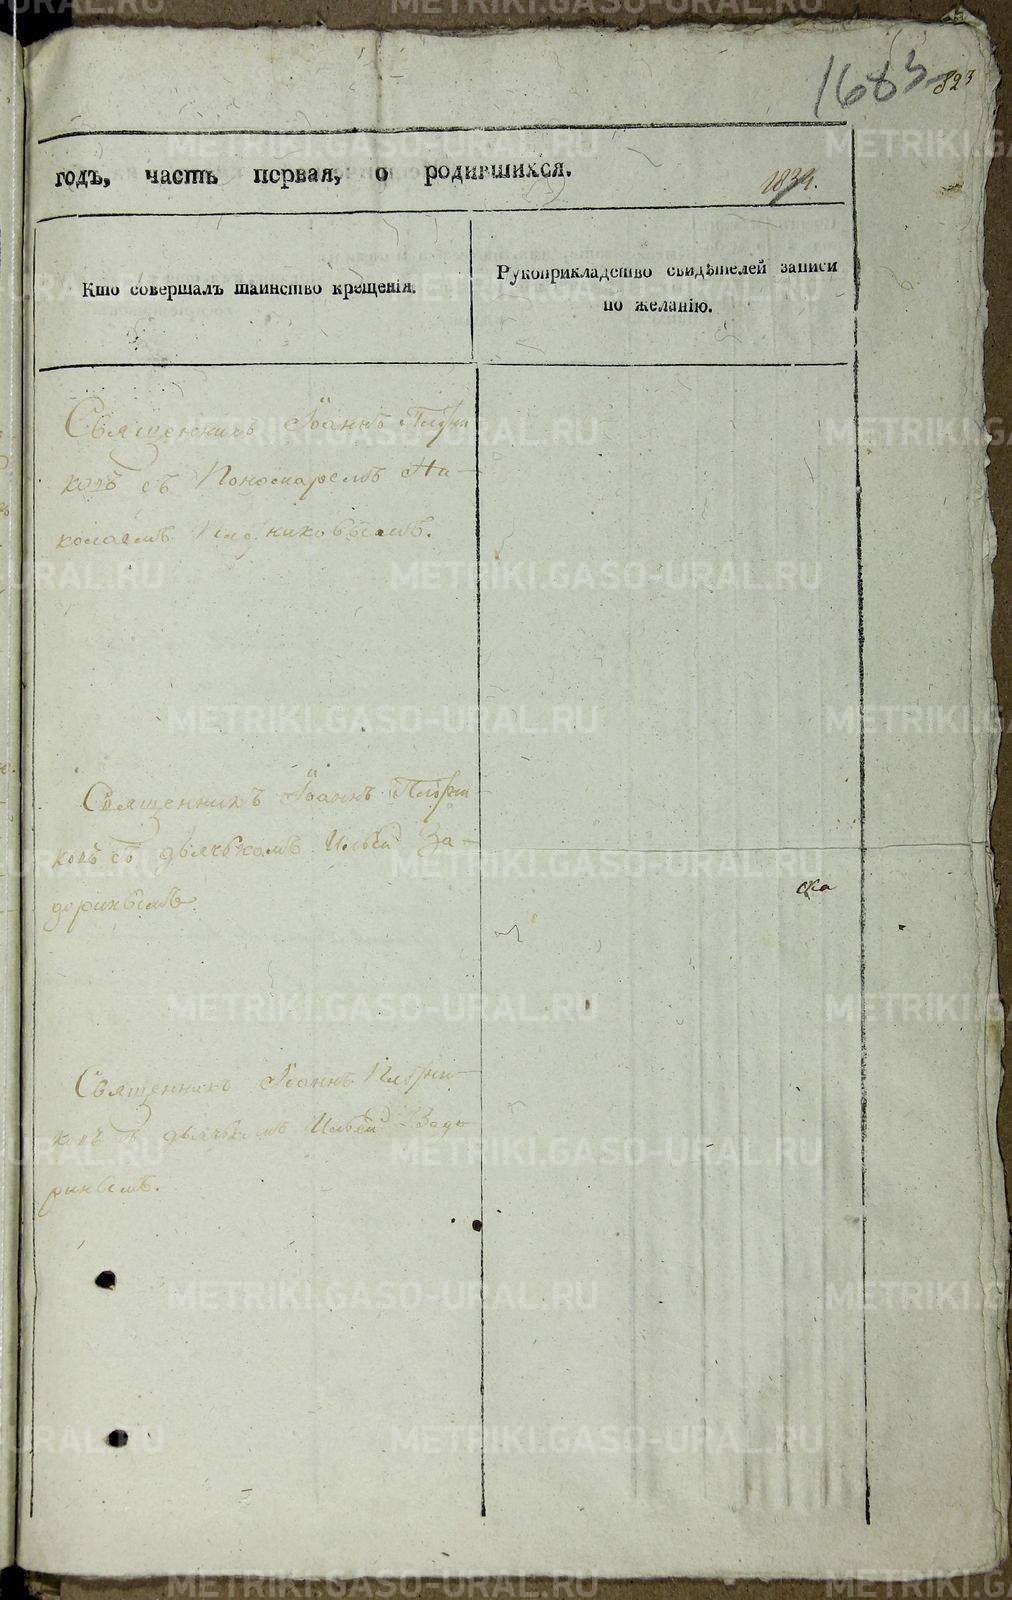 1683
823
годъ, часть первая, о родившихся.
1834.
Кто совершалъ таинство крещенія.
Рукоприкладство свидѣтелей записи
по желанію.
Священникъ Іоаннъ
съ Пономаремъ Ни-
колаемъ
Священникъ Іоаннъ
съ дьячькомъ Ильей За-
доринымъ
Священникъ Іоаннъ
дьячькомъ Ильей Задо
ринымъ.
METRIKI.GASO-URAL.RU